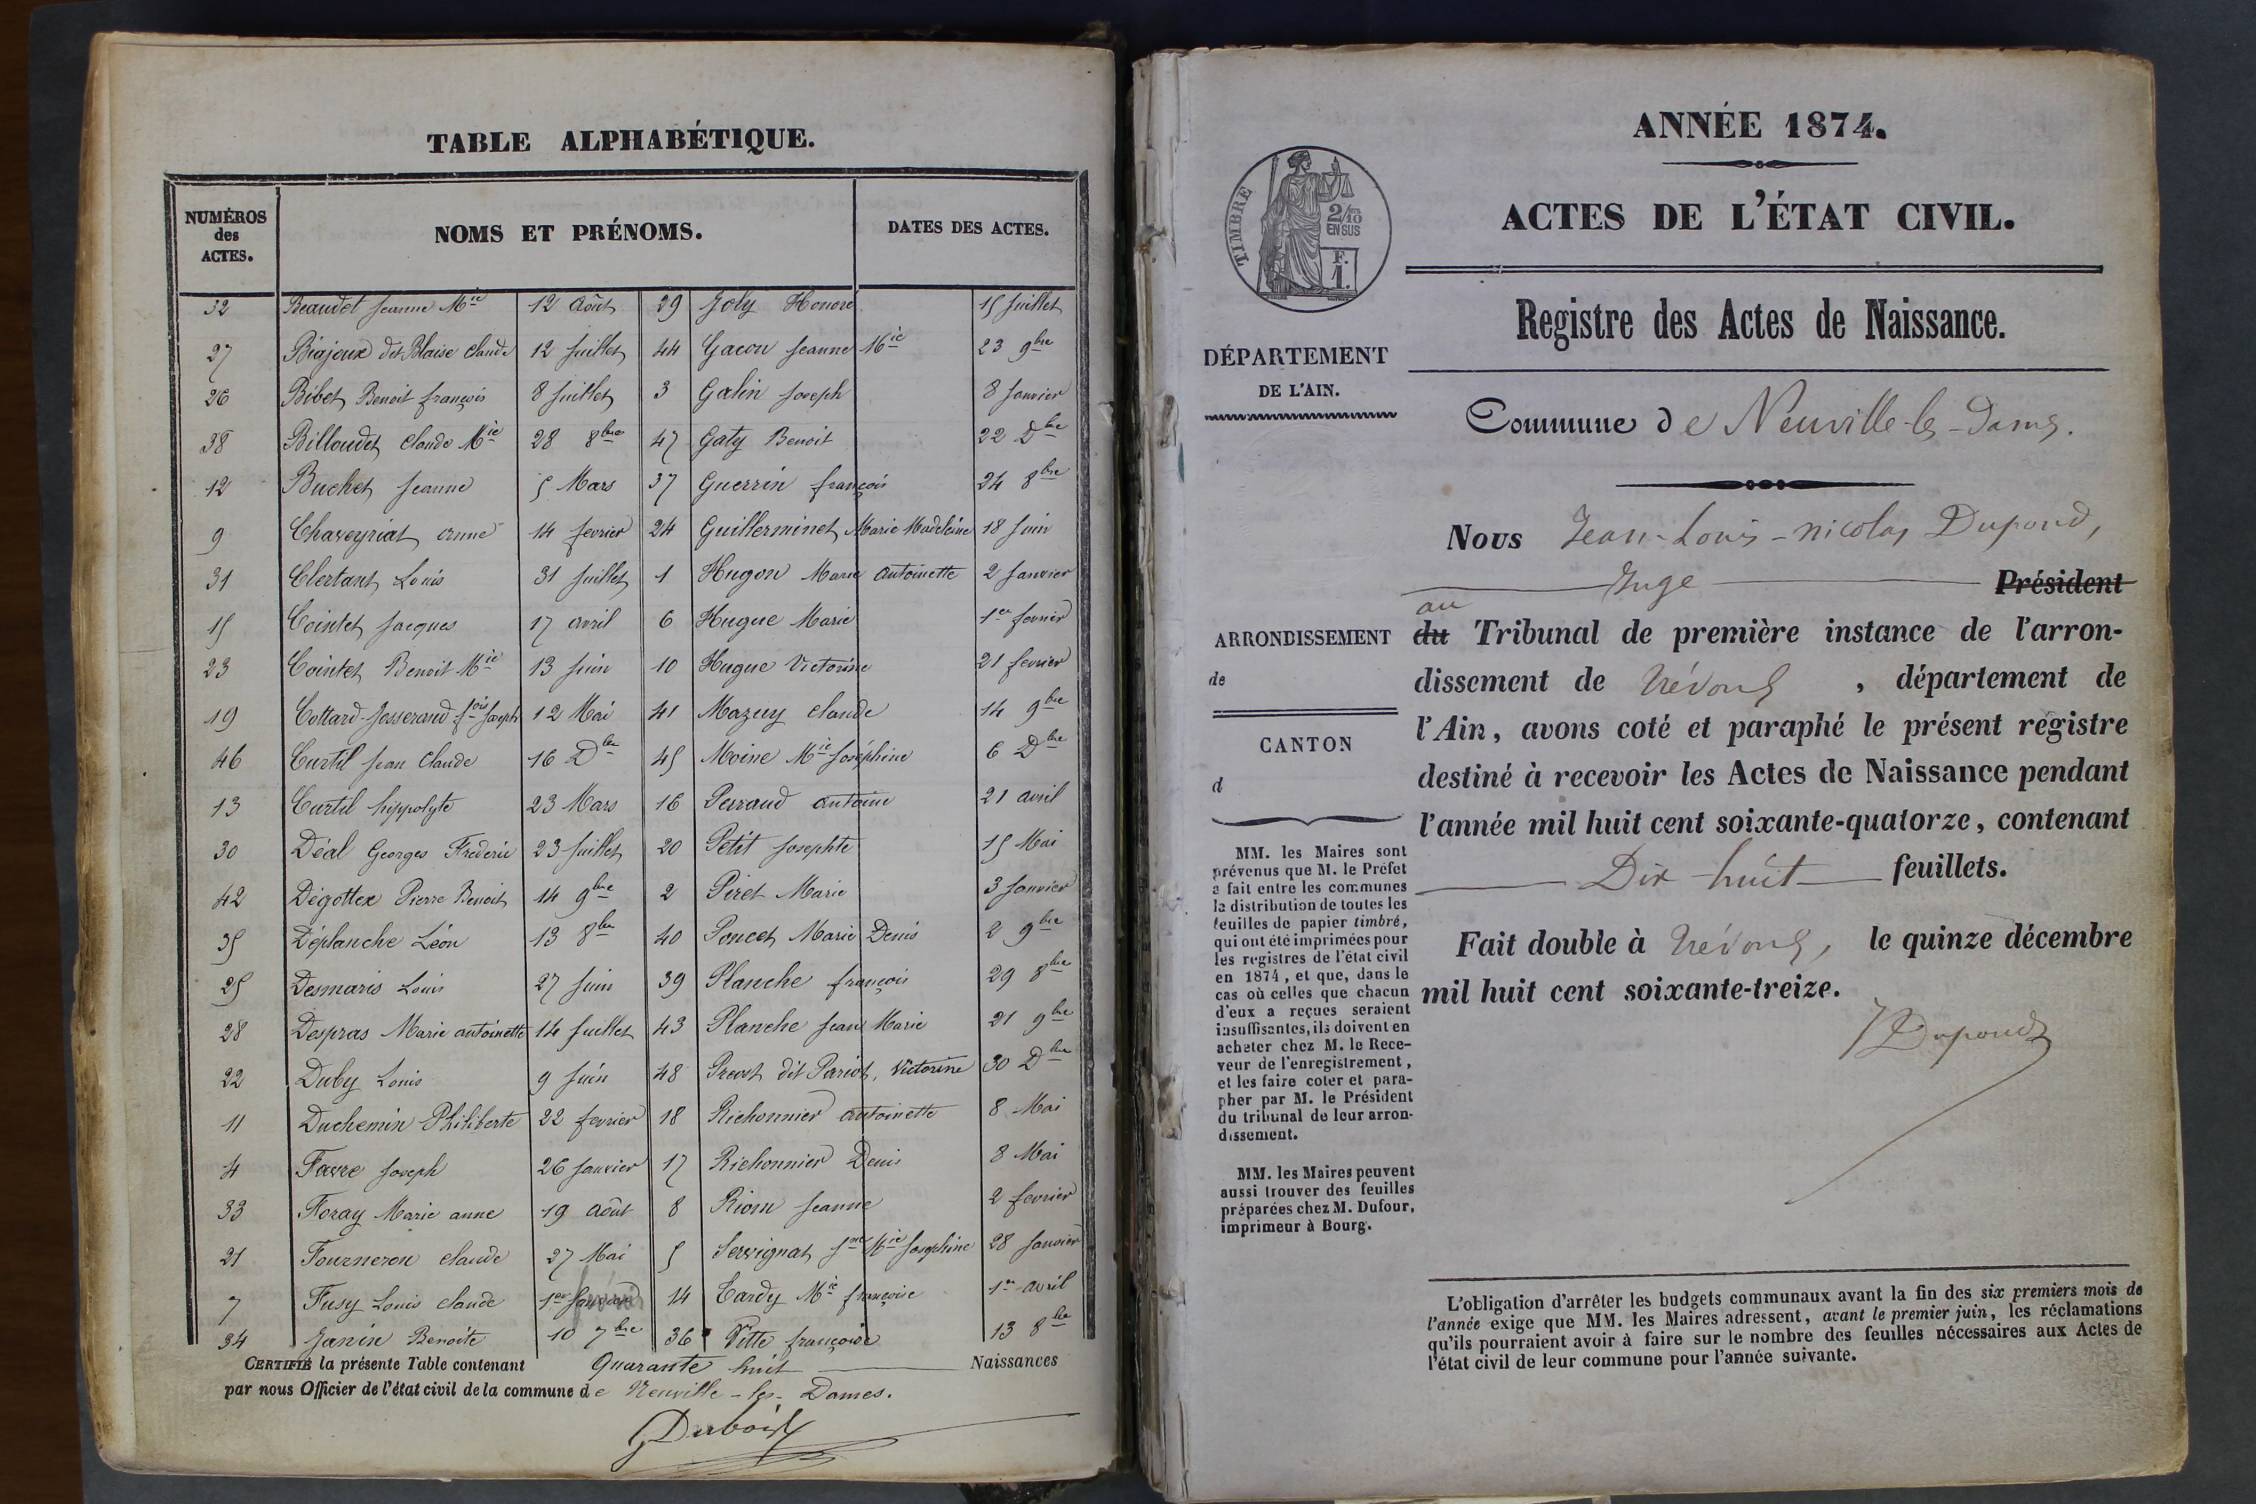 TABLE ALPHABÉTIQUE.
NUMÉROS
des
ACTES.
NOMS ET PRÉNOMS.
DATES DES ACTES.
32 Beaudet Jeanne Mie 12 Août 29 Joly Honoré 15 Juillet
27 Biajoux dit Blaise Claude 12 Juillet 44 Gacon Jeanne Mie 23 9bre
26 Bibet Benoit françois 8 Juillet 3 Galin Joseph 8 Janvier
38 Billoudet Claude Mie 28 8bre 47 Gaty Benoit 22 Dbre
12 Buchet Jeanne 5 Mars 37 Guerrin françois 24 8bre
9 Chaveyriat anne 14 fevrier 24 Guillerminet Marie Madeleine 18 Juin
31 Clertant Louis 31 Juillet 1 Hugon Marie antoinette 2 Janvier
15 Cointet Jacques 17 avril 6 Hugue Marie 1er fevrier
23 Cointet Benoit Mie 13 Juin 10 Hugue Victorine 21 fevrier
19 Cottard-Josserand fois Joseph 12 Mai 41 Mazuy Claude 14 9bre
46 Curtil Jean Claude 16 Dbre 45 Moine Mie Joséphine 6 Dbre
13 Curtil hippolyte 23 Mars 16 Perraud antoine 21 avril
30 Déal Georges Frederic 23 Juillet 20 Petit Josephte 15 Mai
42 Dégottex Pierre Benoit 14 9bre 2 Piret Marie 3 Janvier
35 Déplanche Léon 13 8bre 40 Poncet Marie Denis 2 9bre
25 Desmaris Louis 27 Juin 39 Planche françois 29 8bre
28 Despras Marie antoinette 14 Juillet 43 Planche Jean Marie 21 9bre
22 Duby Louis 9 Juin 48 Prevost dit Pariot, Victorine 30 Dbre
11 Duchemin Philiberte 22 fevrier 18 Richonnier antoinette 8 Mai
4 Favre Joseph 26 Janvier 17 Richonnier Denis 8 Mai
33 Foray Marie anne 19 Août 8 Riom Jeanne 2 fevrier
21 Fourneron Claude 27 Mai 5 Servignat Jne Mie Josephine 28 Janvier
7 Fusy Louis Claude 1er fevrier 14 Tardy Mie françoise 1er avril
34 Janin Benoite 10 7bre 36 Vitte françoise 13 8bre
CERTIFIÉ la présente Table contenant Quarante huit Naissances
par nous Officier de l'état civil de la commune de Neuville-les-Dames.
Dubois
ANNÉE 1874.
ACTES DE L'ÉTAT CIVIL.
TIMBRE
2/10
EN SUS
F.
1.
Registre des Actes de Naissance.
DÉPARTEMENT
DE L'AIN.
Commune de Neuville-les-Dames.
Nous Jean-Louis-nicolas Dupond,
Juge Président
au
du Tribunal de première instance de l'arron-
dissement de Trévoux, département de
l'Ain, avons coté et paraphé le présent régistre
destiné à recevoir les Actes de Naissance pendant
l'année mil huit cent soixante-quatorze, contenant
Dix-huit feuillets.
Fait double à Trévoux, le quinze décembre
mil huit cent soixante-treize.
JDupond
ARRONDISSEMENT
de
CANTON
d
MM. les Maires sont
prévenus que M. le Préfet
a fait entre les communes
la distribution de toutes les
feuilles de papier timbré,
qui ont été imprimées pour
les registres de l'état civil
en 1874, et que, dans le
cas où celles que chacun
d'eux a reçues seraient
insuffisantes, ils doivent en
acheter chez M. le Rece-
veur de l'enregistrement,
et les faire coter et para-
pher par M. le Président
du tribunal de leur arron-
dissement.
MM. les Maires peuvent
aussi trouver des feuilles
préparées chez M. Dufour,
imprimeur à Bourg.
L'obligation d'arrêter les budgets communaux avant la fin des six premiers mois de
l'année exige que MM. les Maires adressent, avant le premier juin, les réclamations
qu'ils pourraient avoir à faire sur le nombre des feuilles nécessaires aux Actes de
l'état civil de leur commune pour l'année suivante.